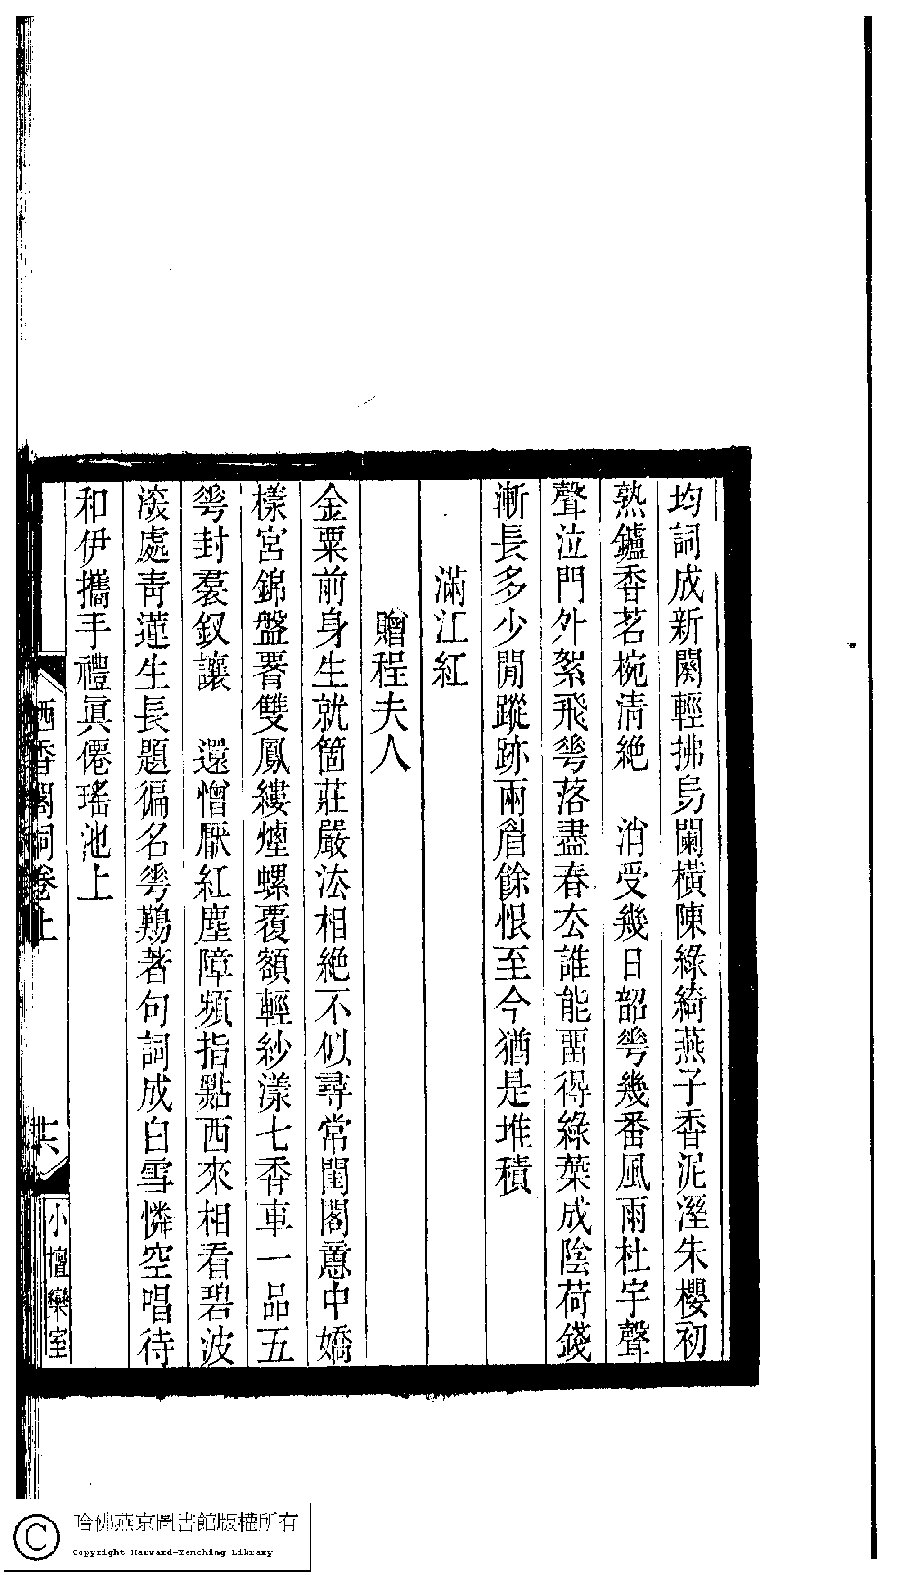 均詞成新闋輕拂烏闌橫陳綠綺燕子香泥溼朱櫻初
熟鑪香茗椀清絶　消受幾日韶蕚幾番風雨杜宇聲
聲泣門外絮飛蕚落盡春厺誰能畱得綠葉成陰荷錢
漸長多少閒蹤跡兩眉餘恨至今猶是堆積
滿江紅
贈程夫人
金粟前身生就箇莊嚴法相絶不似尋常閨閣意中嬌
樣宮錦盤罾雙鳳縷煙螺覆額輕紗漾七香車一品五
蕚封羣釵讓　還憎厭紅塵障頻指點西來相看碧波
深處青蓮生長題徧名蕚鷄著句詞成白雪憐空唱待
和伊攜手禮眞僊瑤池上
栖香閣詞卷上
十六
小檀欒室
哈佛燕京圖書館版權所有
Copyright Harvard-Yenching Library